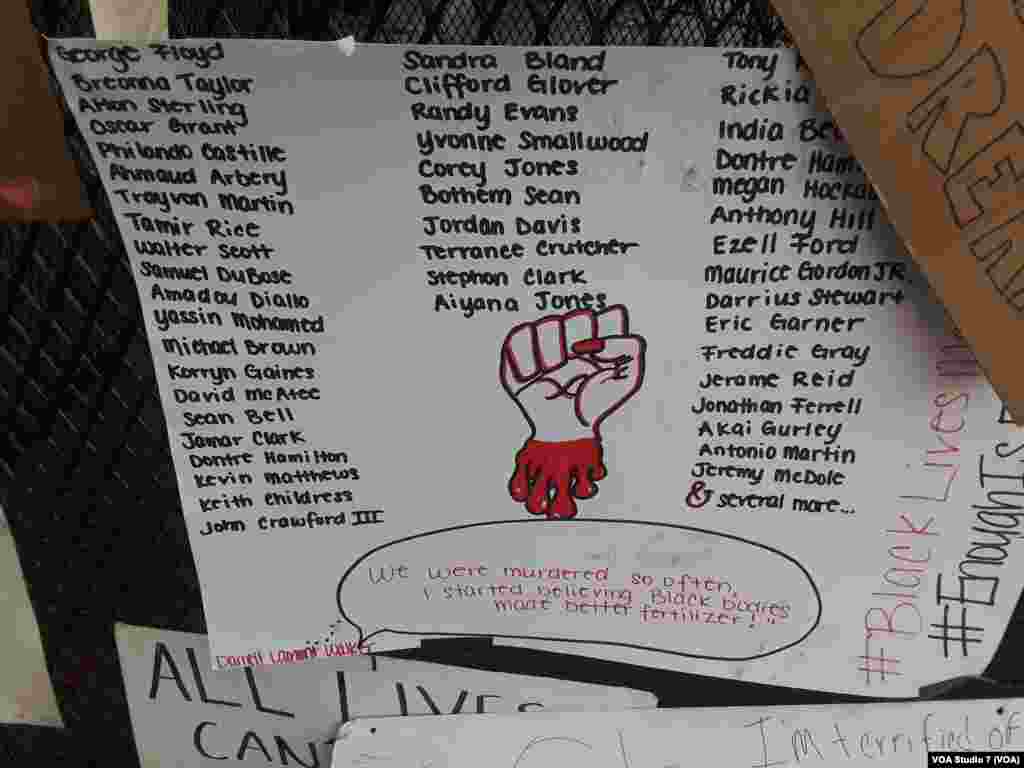 George Floyd
Breonna Taylor
Alton Sterling
Oscar Grant
Philando Castille
Ahmaud Arbery
Trayvon Martin
Tamir Rice
Walter Scott
Samuel DuBose
Amadou Diallo
Yassin Mohamed
Michael Brown
Korryn Gaines
David McAtee
Sean Bell
Jamar Clark
Dontre Hamilton
Kevin Matthews
Keith Childress
John Crawford III
Sandra Bland
Clifford Glover
Randy Evans
Yvonne Smallwood
Corey Jones
Bothem Sean
Jordan Davis
Terrance Crutcher
Stephon Clark
Aiyana Jones
Tony
Rickia
India
Dontre
Megan
Anthony Hill
Ezell Ford
Maurice Gordon JR.
Darrius Stewart
Eric Garner
Freddie Gray
Jerame Reid
Jonathan Ferrell
Akai Gurley
Antonio Martin
Jeremy McDole
& several more...
We were murdered so often,
I started believing Black bodies
made better fertilizer!
Darrell Lamont
#Black Lives
#EnoughIs
ALL LIVES
CAN'T
I'm terrified of
VOA Studio 7 (VOA)